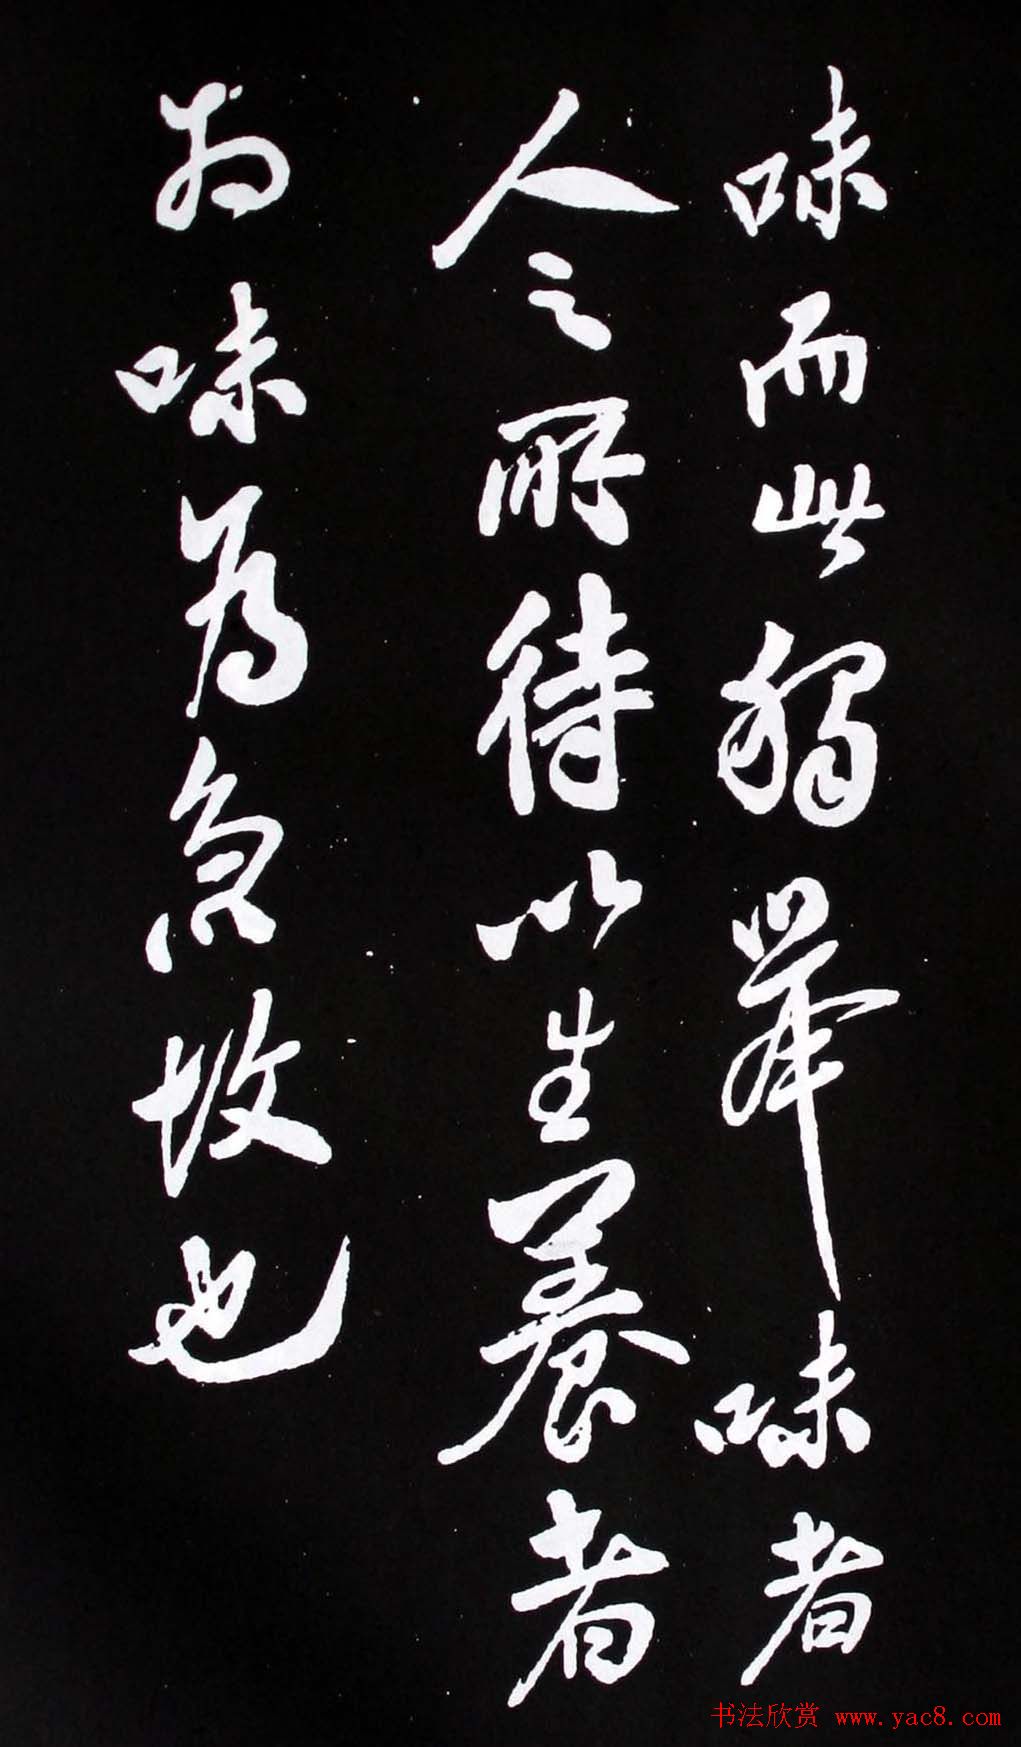 味而此獨舉味者
人之所待以生養者
味為急故也
书法欣赏 www.yac8.com